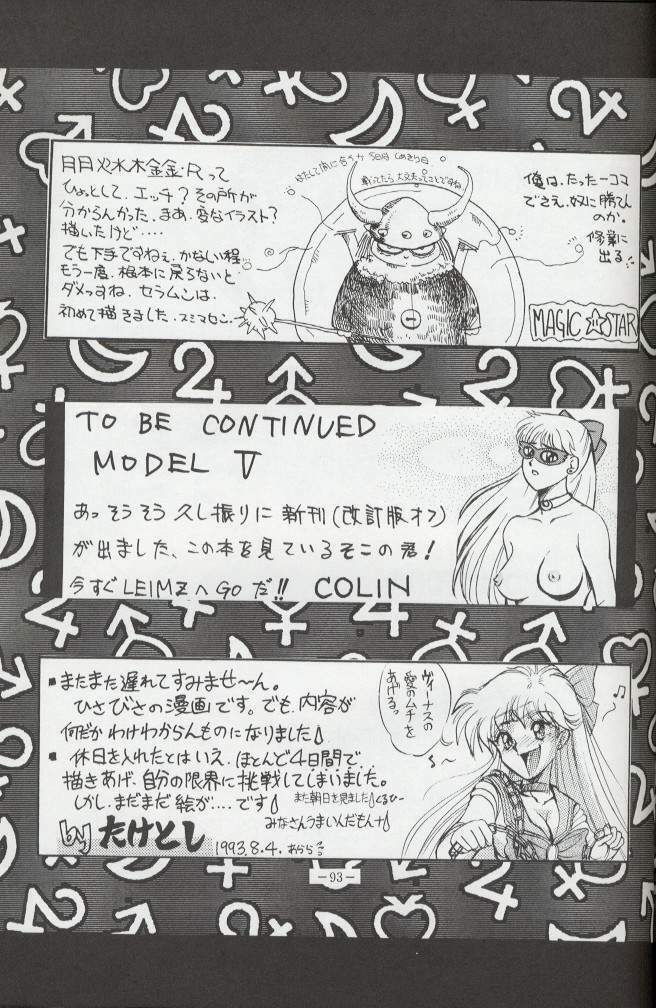 月月火水木金金・Rって
ひょっとして、エッチ？その所が
分からんかった。まあ、変なイラスト？
描いたけど‥‥
でも下手ですねぇ、かなしい程
もう一度、根本に戻らないと
ダメっすね、セラムンは
初めて描きました、スミマセン、
俺は、たった一コマ
でさえ、奴に勝てん
のか。
修業に
出る
MAGIC STAR
TO BE CONTINUED
MODEL V
あっ そうそう 久し振りに 新刊(改訂版オフ)
が出ました、この本を見ているそこの君！
今すぐ LEIMZ へ GO だ!! COLIN
ヴィーナスの
愛のムチを
あげるっ
▪またまた遅れてすみませ〜ん。
ひさびさの漫画です。でも、内容が
何だかわけわからんものになりました♪
▪休日を入れたとはいえ、ほとんど4日間で、
描きあげ、自分の限界に挑戦してしまいました。
しかし、まだまだ絵が‥‥です♪
また朝日を見ました♪
みなさんうまいんだもんナ
by たけとし
1993.8.4.
－93－